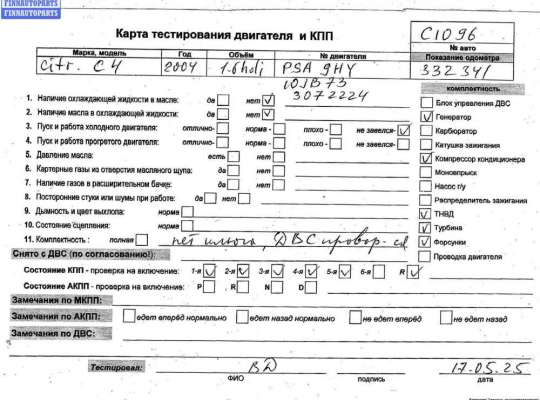 FINNAUTOPARTS
FINNAUTOPARTS
Карта тестирования двигателя и КПП
C1096
№ авто
Марка, модель Год Объём № двигателя Показание одометра
Citr. C4 2004 1.6hdi PSA 9HY 332341
10JB73
3072224
комплектность
1. Наличие охлаждающей жидкости в масле: да нет
2. Наличие масла в охлаждающей жидкости: да нет
3. Пуск и работа холодного двигателя: отлично- норма - плохо - не завелся-
4. Пуск и работа прогретого двигателя: отлично- норма - плохо - не завелся-
5. Давление масла: есть нет
6. Картерные газы из отверстия масляного щупа: да нет
7. Наличие газов в расширительном бачке: да нет
8. Посторонние стуки или шумы при работе: да нет
9. Дымность и цвет выхлопа: норма
10. Состояние сцепления: норма
11. Комплектность : полная нет ключа, ДВС провор-ся
Блок упрвления ДВС
Генератор
Карбюратор
Катушка зажигания
Компрессор кондиционера
Моновпрыск
Насос г/у
Распределитель зажигания
ТНВД
Турбина
Форсунки
Проводка двигателя
Снято с ДВС (по согласованию!):
Состояние КПП - проверка на включение: 1-я 2-я 3-я 4-я 5-я 6-я R
Состояние АКПП - проверка на включение: P R N D
Замечания по МКПП:
Замечания по АКПП: едет вперёд нормально едет назад нормально не едет вперёд не едет назад
Замечания по ДВС:
Тестировал: ВД 17.05.25
ФИО подпись дата